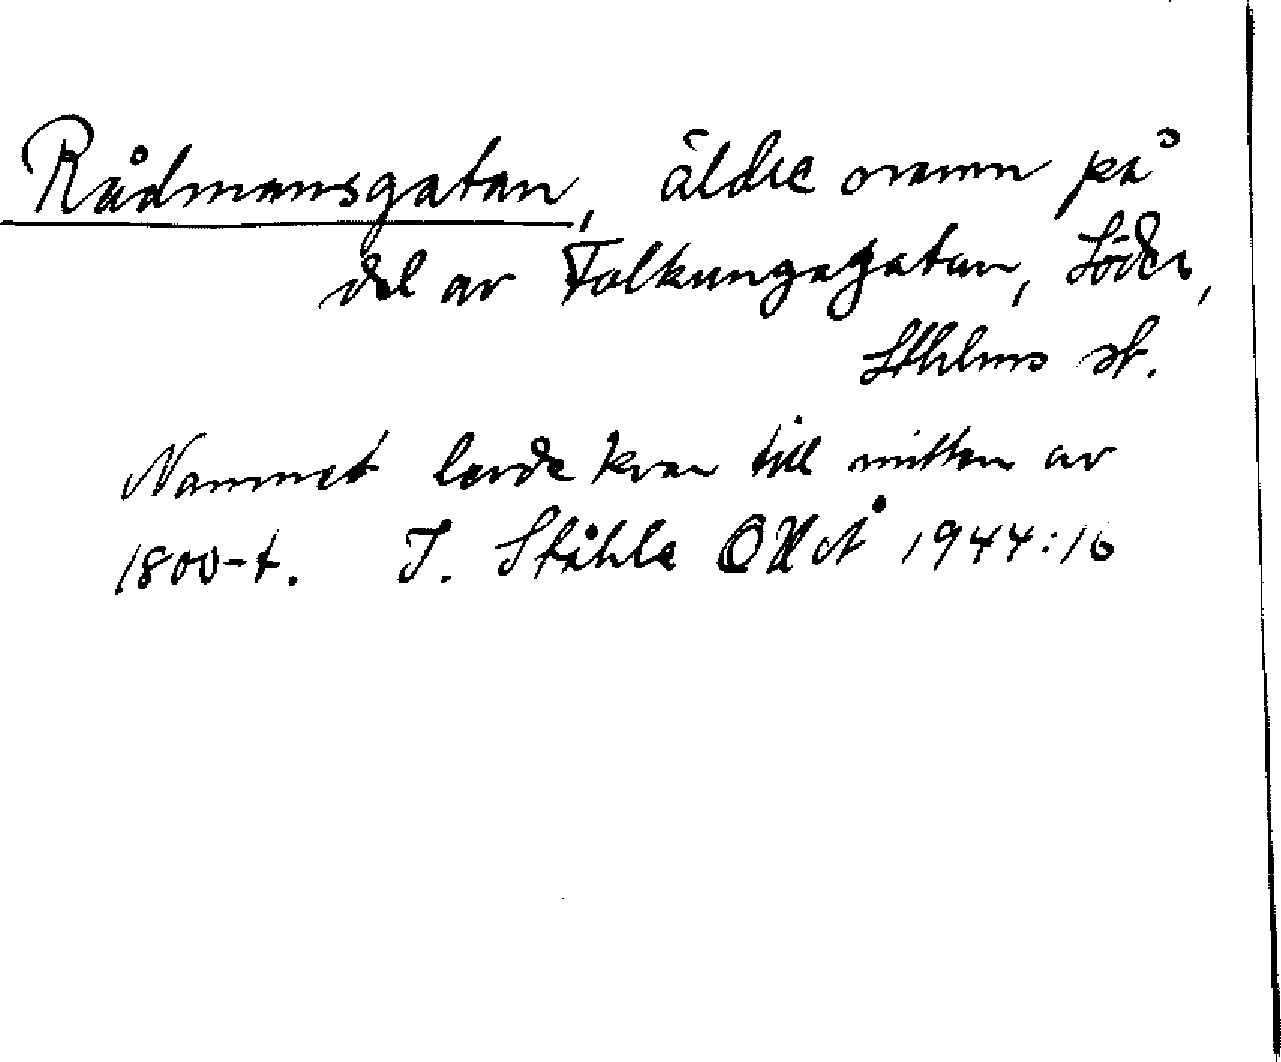 Rådmansgatan, äldre namn på
del av Folkungagatan, Söder,
Sthlms st.
Namnet levde kvar till mitten av
1800-t. J. Ståhle 1944:16